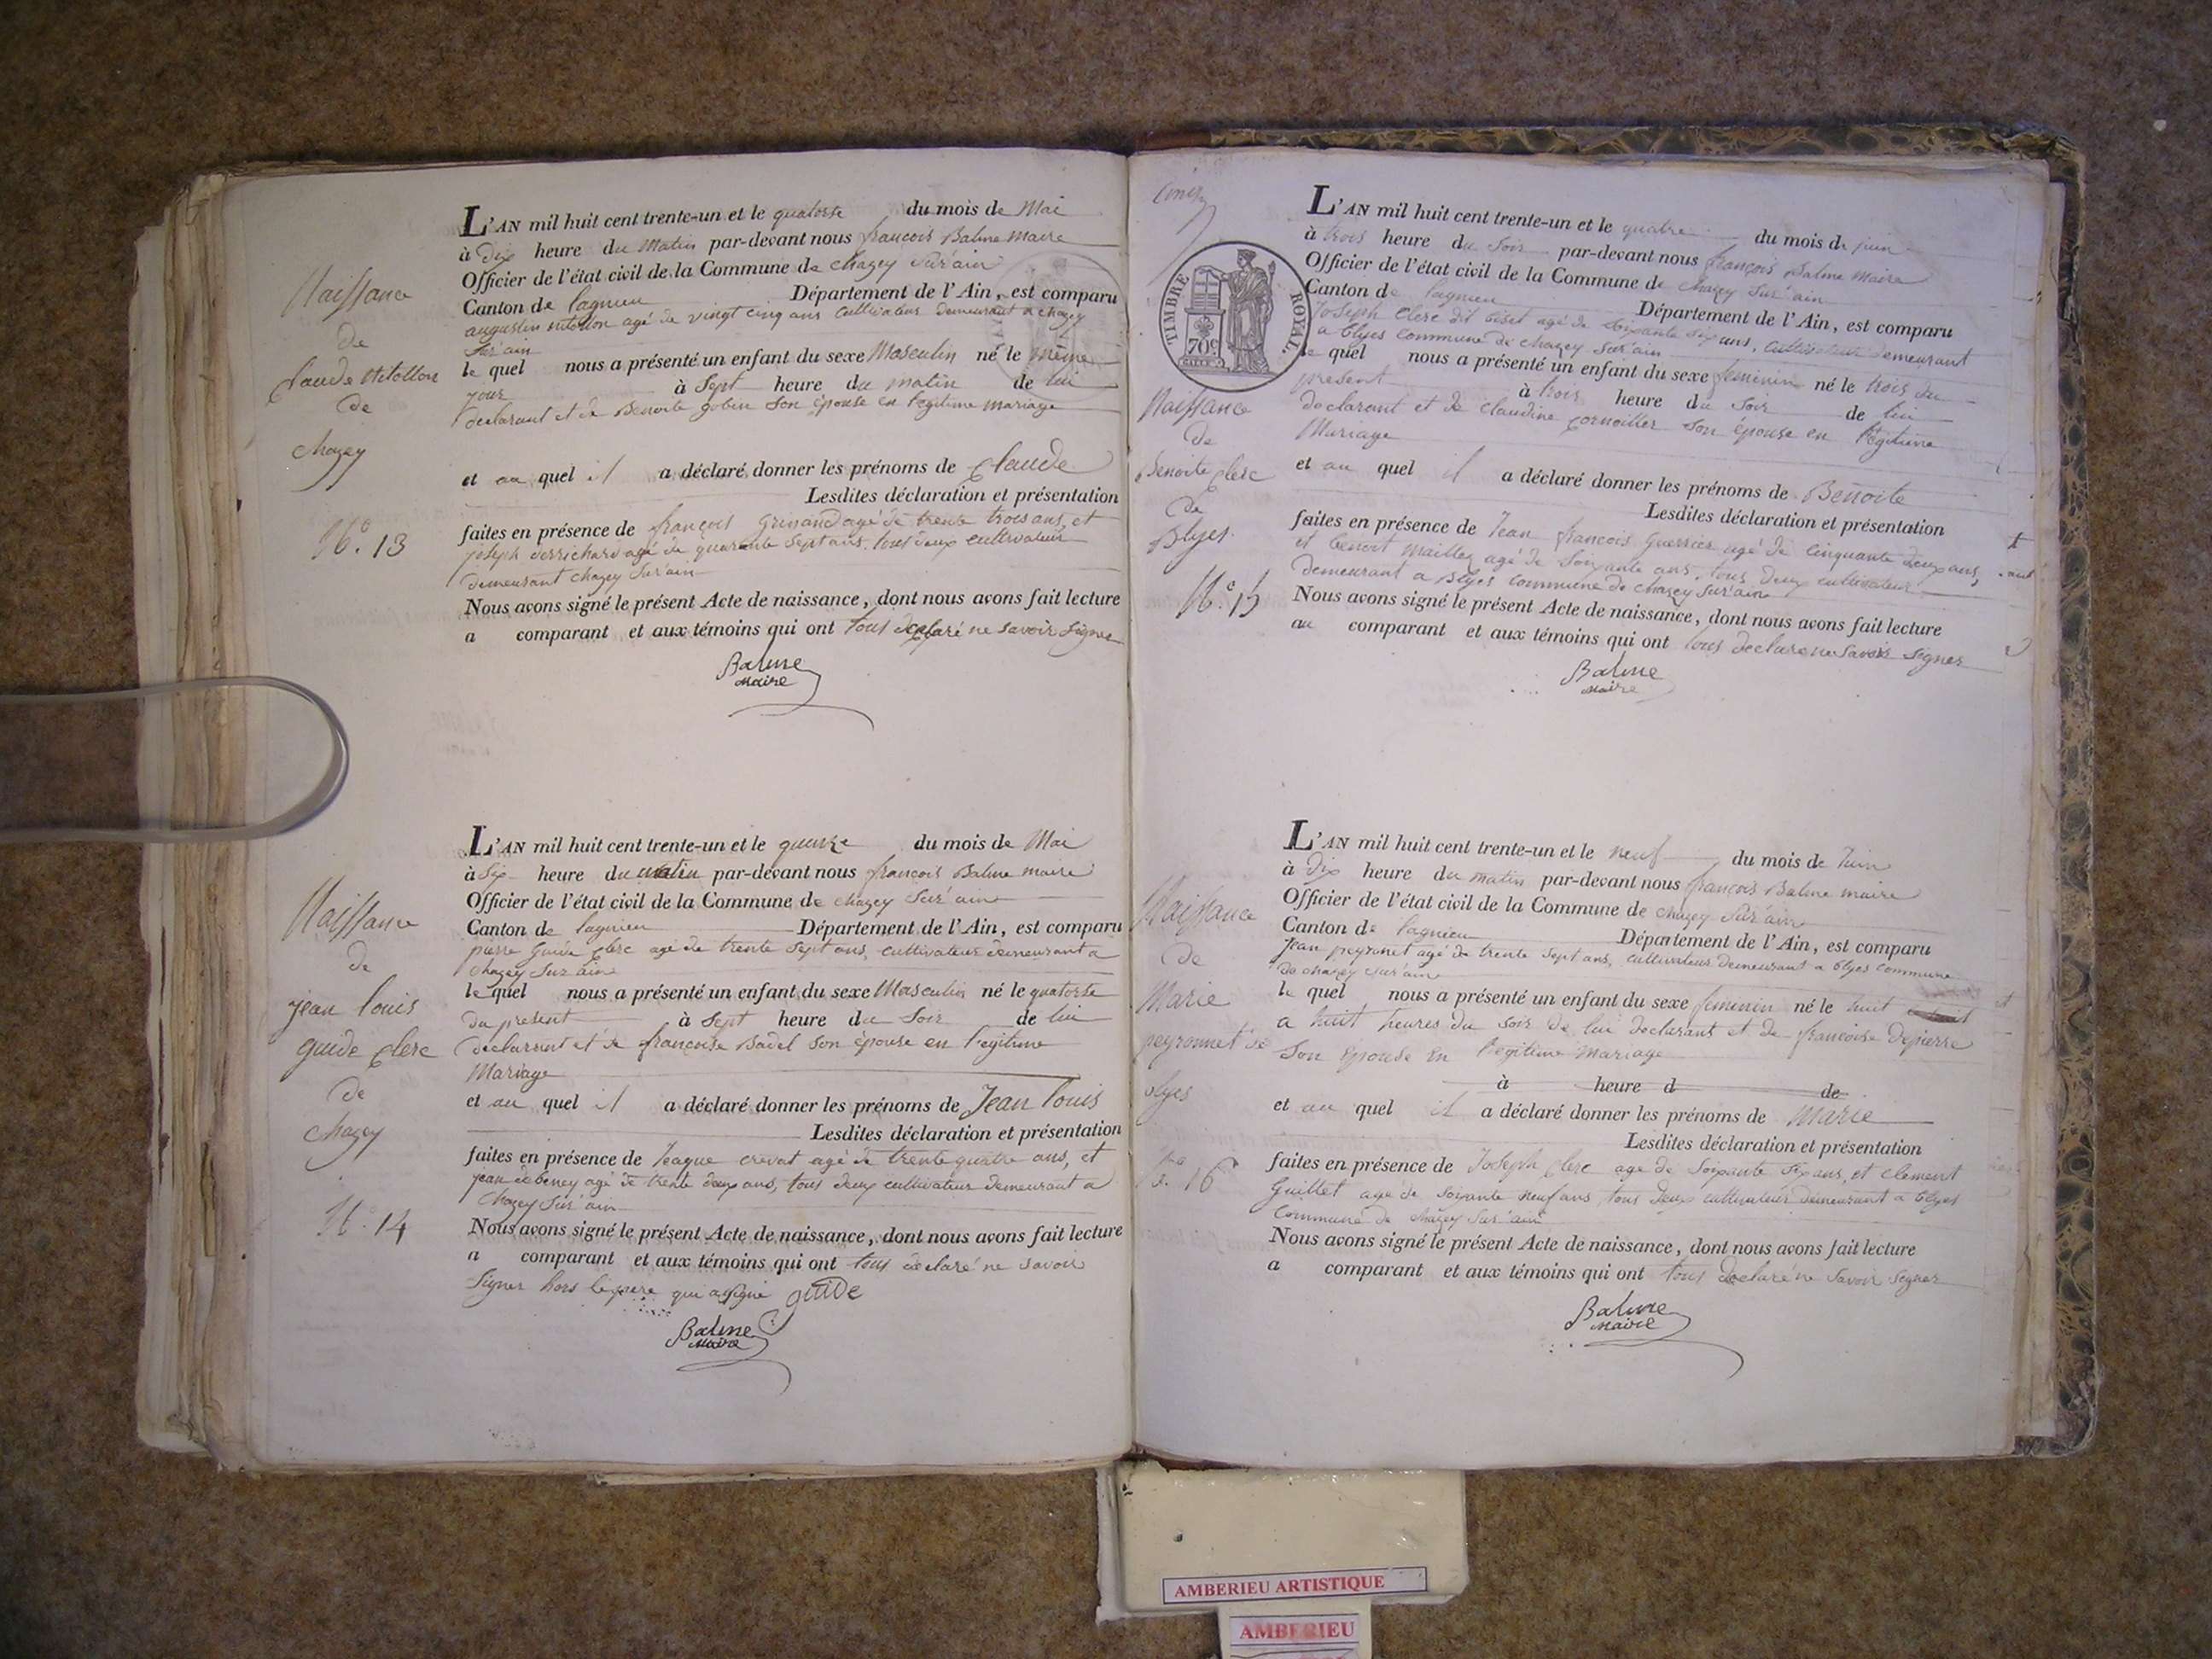 Naissance
de
Claude
de
chazey
N.º 13
L'AN mil huit cent trente-un et le quatorse du mois de Mai
à Dix heure du Matin par-devant nous francois Balme Maire
Officier de l'état civil de la Commune de chazey Sur'ain
Canton de lagnieu Département de l'Ain, est comparu
augustin agé de vingt cinq ans cultivateur demeurant a chazey
Sur'ain
le quel nous a présenté un enfant du sexe Masculin né le même
jour à Sept heure du matin de lui
declarant et de Benoite gobin Son épouse en legitime mariage
et au quel il a déclaré donner les prénoms de Claude
Lesdites déclaration et présentation
faites en présence de françois agé de trente trois ans, et
joseph agé de quarante Sept ans, tous deux cultivateur
demeurant chazey Sur'ain
Nous avons signé le présent Acte de naissance, dont nous avons fait lecture
a comparant et aux témoins qui ont tous declaré ne savoir signer
Balme
Maire
Naissance
de
jean louis
guide Clerc
de
chazey
N.º 14
L'AN mil huit cent trente-un et le quinze du mois de Mai
à Six heure du matin par-devant nous francois Balme maire
Officier de l'état civil de la Commune de chazey Sur'ain
Canton de lagnieu Département de l'Ain, est comparu
pierre Guide Clerc agé de trente Sept ans, cultivateur demeurant a
chazey Sur'ain
le quel nous a présenté un enfant du sexe Masculin né le quatorse
du present à Sept heure du Soir de lui
declarant et de francoise Badel Son épouse en legitime
Mariage
et au quel il a déclaré donner les prénoms de Jean louis
Lesdites déclaration et présentation
faites en présence de crevat agé de trente quatre ans, et
jean debeney agé de trente deux ans, tous deux cultivateur demeurant a
chazey Sur'ain
Nous avons signé le présent Acte de naissance, dont nous avons fait lecture
a comparant et aux témoins qui ont tous declaré ne savoir
Signer hors le pere qui a signé guide
Balme
Maire
TIMBRE ROYAL.
70c
Naissance
de
Benoite Clerc
de
Blyes.
N.º 15
L'AN mil huit cent trente-un et le quatre du mois de juin
à trois heure du Soir par-devant nous françois Balme Maire
Officier de l'état civil de la Commune de chazey Sur'ain
Canton de lagnieu Département de l'Ain, est comparu
Joseph Clerc dit agé de Soixante Six ans, cultivateur demeurant
a blyes commune de chazey Sur'ain
le quel nous a présenté un enfant du sexe feminin né le trois du
present à trois heure du Soir de lui
declarant et de claudine cornoiller Son épouse en legitime
Mariage
et au quel il a déclaré donner les prénoms de Benoite
Lesdites déclaration et présentation
faites en présence de Jean francois Guerrier agé de cinquante deux ans,
et benoit maillez agé de Soixante ans, tous deux cultivateur
demeurant a Blyes commune de chazey Sur'ain
Nous avons signé le présent Acte de naissance, dont nous avons fait lecture
au comparant et aux témoins qui ont tous declare ne Savoir signer
Balme
Maire
Naissance
de
Marie
peyronnet de
blyes
16
L'AN mil huit cent trente-un et le neuf du mois de Juin
à Dix heure du matin par-devant nous francois Balme maire
Officier de l'état civil de la Commune de chazey Sur'ain
Canton de lagnieu Département de l'Ain, est comparu
jean peyronet agé de trente Sept ans, cultivateur demeurant a blyes commune
de chazey Sur'ain
le quel nous a présenté un enfant du sexe femenin né le huit
a huit heures du soir de lui declarant et de francoise Depierre
Son épouse en legitime mariage
à heure d de
et au quel il a déclaré donner les prénoms de Marie
Lesdites déclaration et présentation
faites en présence de Joseph Clerc agé de Soixante Six ans, et clement
Guillet agé de Soixante neuf ans, tous deux cultivateur demeurant a blyes
commune de chazey Sur'ain
Nous avons signé le présent Acte de naissance, dont nous avons fait lecture
a comparant et aux témoins qui ont tous declaré ne Savoir signer
Balme
Maire
AMBERIEU ARTISTIQUE
AMBERIEU